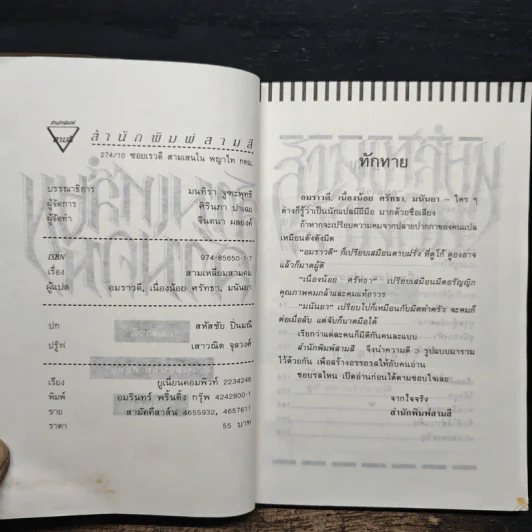 สำนักพิมพ์
สามสี
สำนักพิมพ์สามสี
274/10 ซอยเรวดี สามเสนใน พญาไท กทม.
บรรณาธิการ มนทิรา จูฑะพุทธิ
ผู้จัดการ ศิรินภา
ผู้จัดทำ จินตนา ผลยงค์
ISBN 974-85650-1-7
เรื่อง สามเหลี่ยมสามคม
ผู้แปล อมราวดี, เนื่องน้อย ศรัทธา, มนันยา
ปก สหัสชัย ปิ่นมณี
ปรู๊ฟ เสาวณิต จุลวงศ์
เรียง ยูเนี่ยนคอมพิวท์ 2234246
พิมพ์ อมรินทร์ พริ้นติ้ง กรุ๊พ 4242800-1
ขาย สามัคคีสาส์น 4655932, 4657611
ราคา 55 บาท
ทักทาย
อมราวดี, เนื่องน้อย ศรัทธา, มนันยา – ใคร ๆ
ต่างก็รู้ว่าเป็นนักแปลมีฝีมือ มากด้วยชื่อเสียง
ถ้าหากจะเปรียบความคมจากปลายปากกาของคนแปล
เหมือนดั่งตัวมีด
"อมราวดี" ก็เปรียบเสมือนดาบฝรั่ง ที่ดูโก้ ดูองอาจ
แล้วก็มาดผู้ดี
"เนื่องน้อย ศรัทธา" เปรียบเสมือนมีดอรัญญิก
คุณภาพคมกล้าและคมแท้ถาวร
"มนันยา" เปรียบไปก็เหมือนกับมีดทำครัว จะคมก็
ต่อเมื่อลับ แต่จับก็บาดมือได้
เรียกว่าแต่ละคนก็มีดีกันคนละแบบ
สำนักพิมพ์สามสี จึงนำความดี ๓ รูปแบบมารวม
ไว้ด้วยกัน เพื่อสร้างอรรถรสให้กับคนอ่าน
ชอบรสไหน เปิดอ่านก่อนได้ตามชอบใจเลย
จากใจจริง
สำนักพิมพ์สามสี